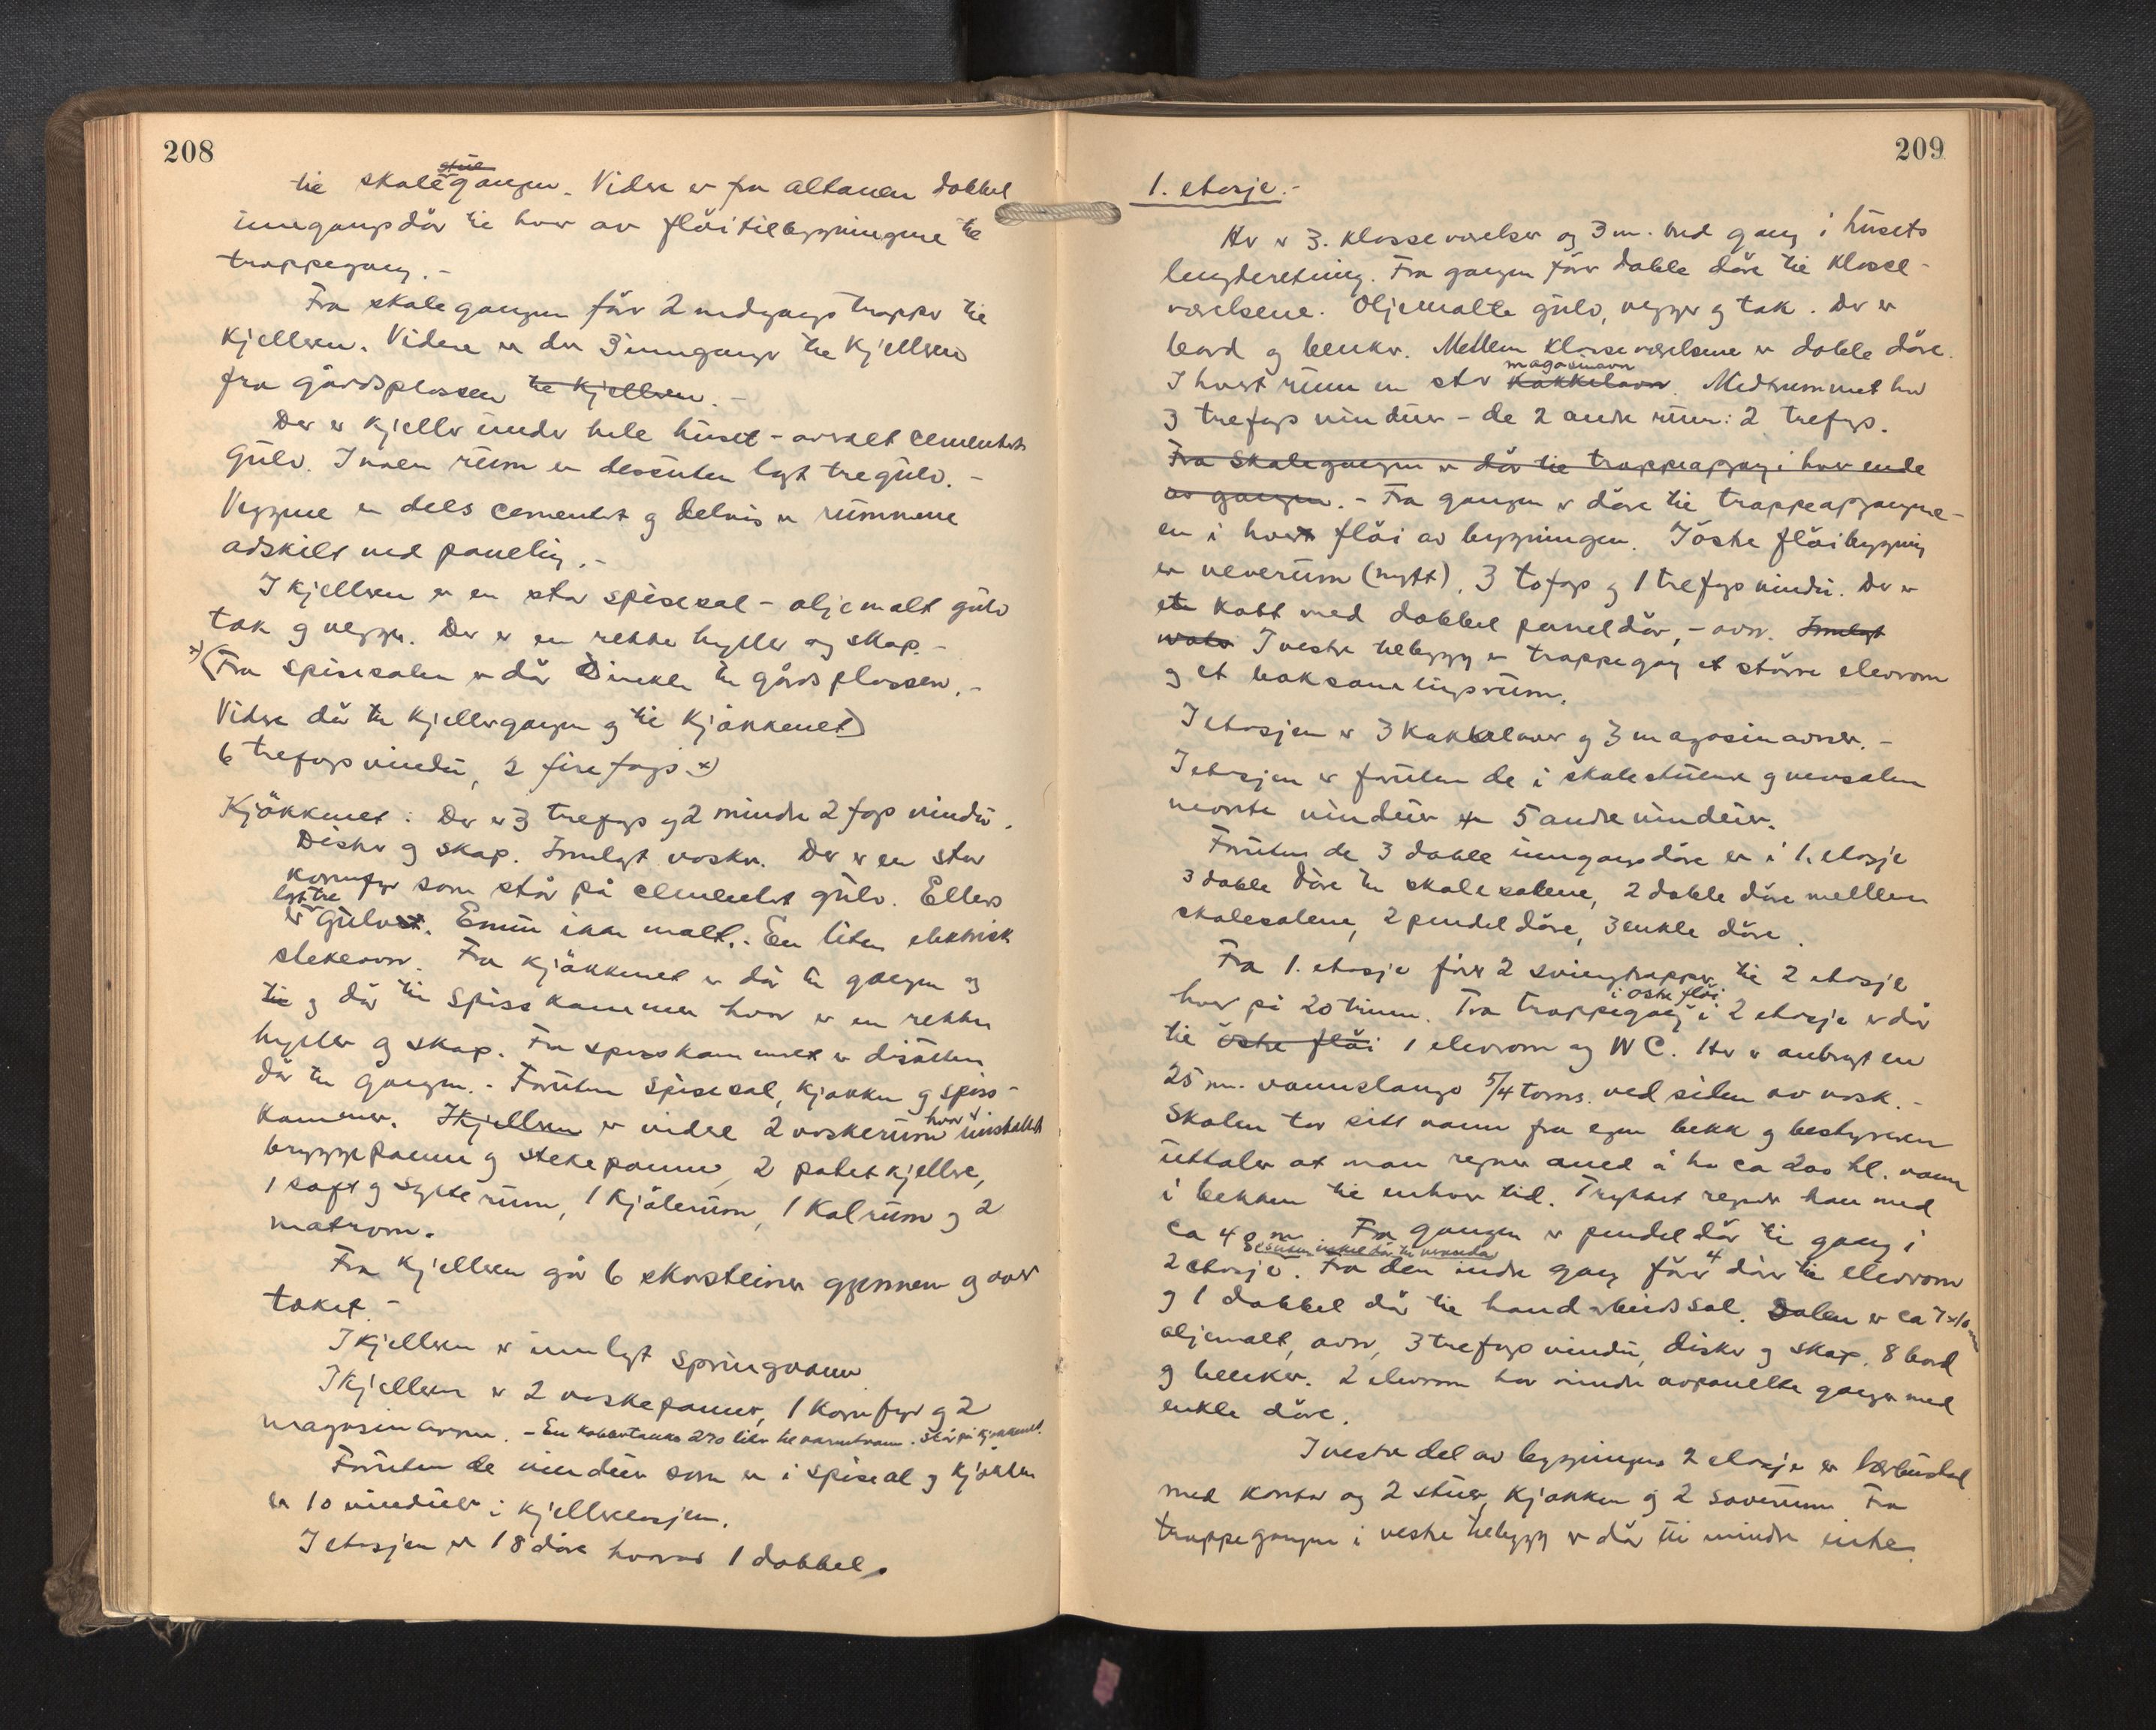 208
til skolegangen. Videre er fra altanen dobbel
inngangsdör til hver av flöitilbygningene til
trappegang. -
Fra skolegangen förer 2 nedgangstrapper til
kjelleren. Videre er der 3 innganger til kjelleren
fra gårdsplassen til kjelleren. -
Der er kjeller under hele huset - overalt cementert
gulv. I noen rum er dessuten lagt tregulv. -
Veggene er dels cementert og delvis er rummene
adskilt med paneling. -
I kjelleren er en stor spisesal - oljemalt gulv
tak og vegger. Der er en rekke hyller og skap. -
x) (Fra spisesalen er dör direkte til gårdsplassen. -
Videre dör til kjellergangen og til kjökkenet)
6 trefags vindu, 2 firefags x)
Kjökkenet: Der er 3 trefags og 2 mindre 2 fags vindu.
Disker og skap. Innlagt vasker. Der er en stor
komfyr som står på cementert gulv. Ellers
lagt tre
er gulvet. Ennu ikke malt. - En liten elektrisk
stekeovn. Fra kjökkenet er dör til gangen og
til og dör til spisskammer hvor er en rekke
hyller og skap. Fra spisskammeret er dessuten
dör til gangen. - Foruten spisesal, kjökken og spiss-
kammer. I kjelleren er videre 2 vaskerum hvor er innstallert
bryggepanne og stekepanne, 2 potetkjellere,
1 saft og sylterum, 1 kjölerum, 1 kolrum og 2
matrom.
Fra kjelleren går 6 skorsteiner gjennem og over
taket. -
I kjelleren er innlagt springvann
I kjelleren er 2 vaskepanner, 1 komfyr og 2
magasinovner. - En kobbertank 270 liter til varmtvann. Står på kjökkenet.
Foruten de vinduer som er i spisesal og kjökken
er 10 vinduer i kjelleretasjen.
I etasjen er 18 döre hvorav 1 dobbel.
209
1. etasje. -
Her er 3. klasseværelser og 3 m. bred gang i husets
lengderetning. Fra gangen förer doble döre til klasse-
værelsene. Oljemalte gulv, vegger og tak. Der er
bord og benker. Mellem klasseværelsene er doble döre.
magasinovn
I hvert rum en stor kakkelovn. Midtrummet har
3 trefags vinduer - de 2 andre rum: 2 trefags.
Fra skolegangen er dör til trappeopgang i hver ende
av gangen. - Fra gangen er döre til trappeopgangene -
en i hver flöi av bygningen. I östre flöibygning
er veverum (nytt), 3 tofags og 1 trefags vindu. Der er
et kott med dobbel paneldör, - ovn. Innlagt
vato I vestre tilbygg er trappegang et större elevrom
og et boksamlingsrum.
I etasjen er 3 kakkelovner og 3 magasinovner. -
I etasjen er foruten de i skolestuene og vevsalen
nevnte vinduer er 5 andre vinduer.
Foruten de 3 doble inngangsdöre er i 1. etasje
3 doble döre til skolesalene, 2 doble döre mellem
skolesalene, 2 pendeldöre, 3 enkle döre.
Fra 1. etasje förer 2 svingtrapper til 2 etasje
i östre flöi
hver på 20 trinn. Fra trappegang i 2 etasje er dör
til östre flöi 1 elevrom og WC. Her er anbragt en
25 m. vannslange 5/4 toms. ved siden av vask. -
Skolen tar sitt vann fra egen bekk og bestyreren
uttaler at man regner med å ha ca 200 hl. vann
i bekken til enhver tid. Trykket regner han med
ca 40 m. Fra gangen er pendeldör til gang i
Dessuten enkel dör til veranda
2 etasje. Fra den indre gang förer 4 dörer til elevrom
og 1 dobbel dör til handarbeidssal. Salen er ca 7x10 m
oljemalt, ovn, 3 trefags vindu, disker og skap. 8 bord
og benker. 2 elevrom har mindre avpanelte ganger med
enkle döre.
I vestre del av bygningens 2 etasje er lærerbustad
med kontor og 2 stuer, kjökken og 2 soverum Fra
trappegangen i vestre tilbygg er dör til mindre indre